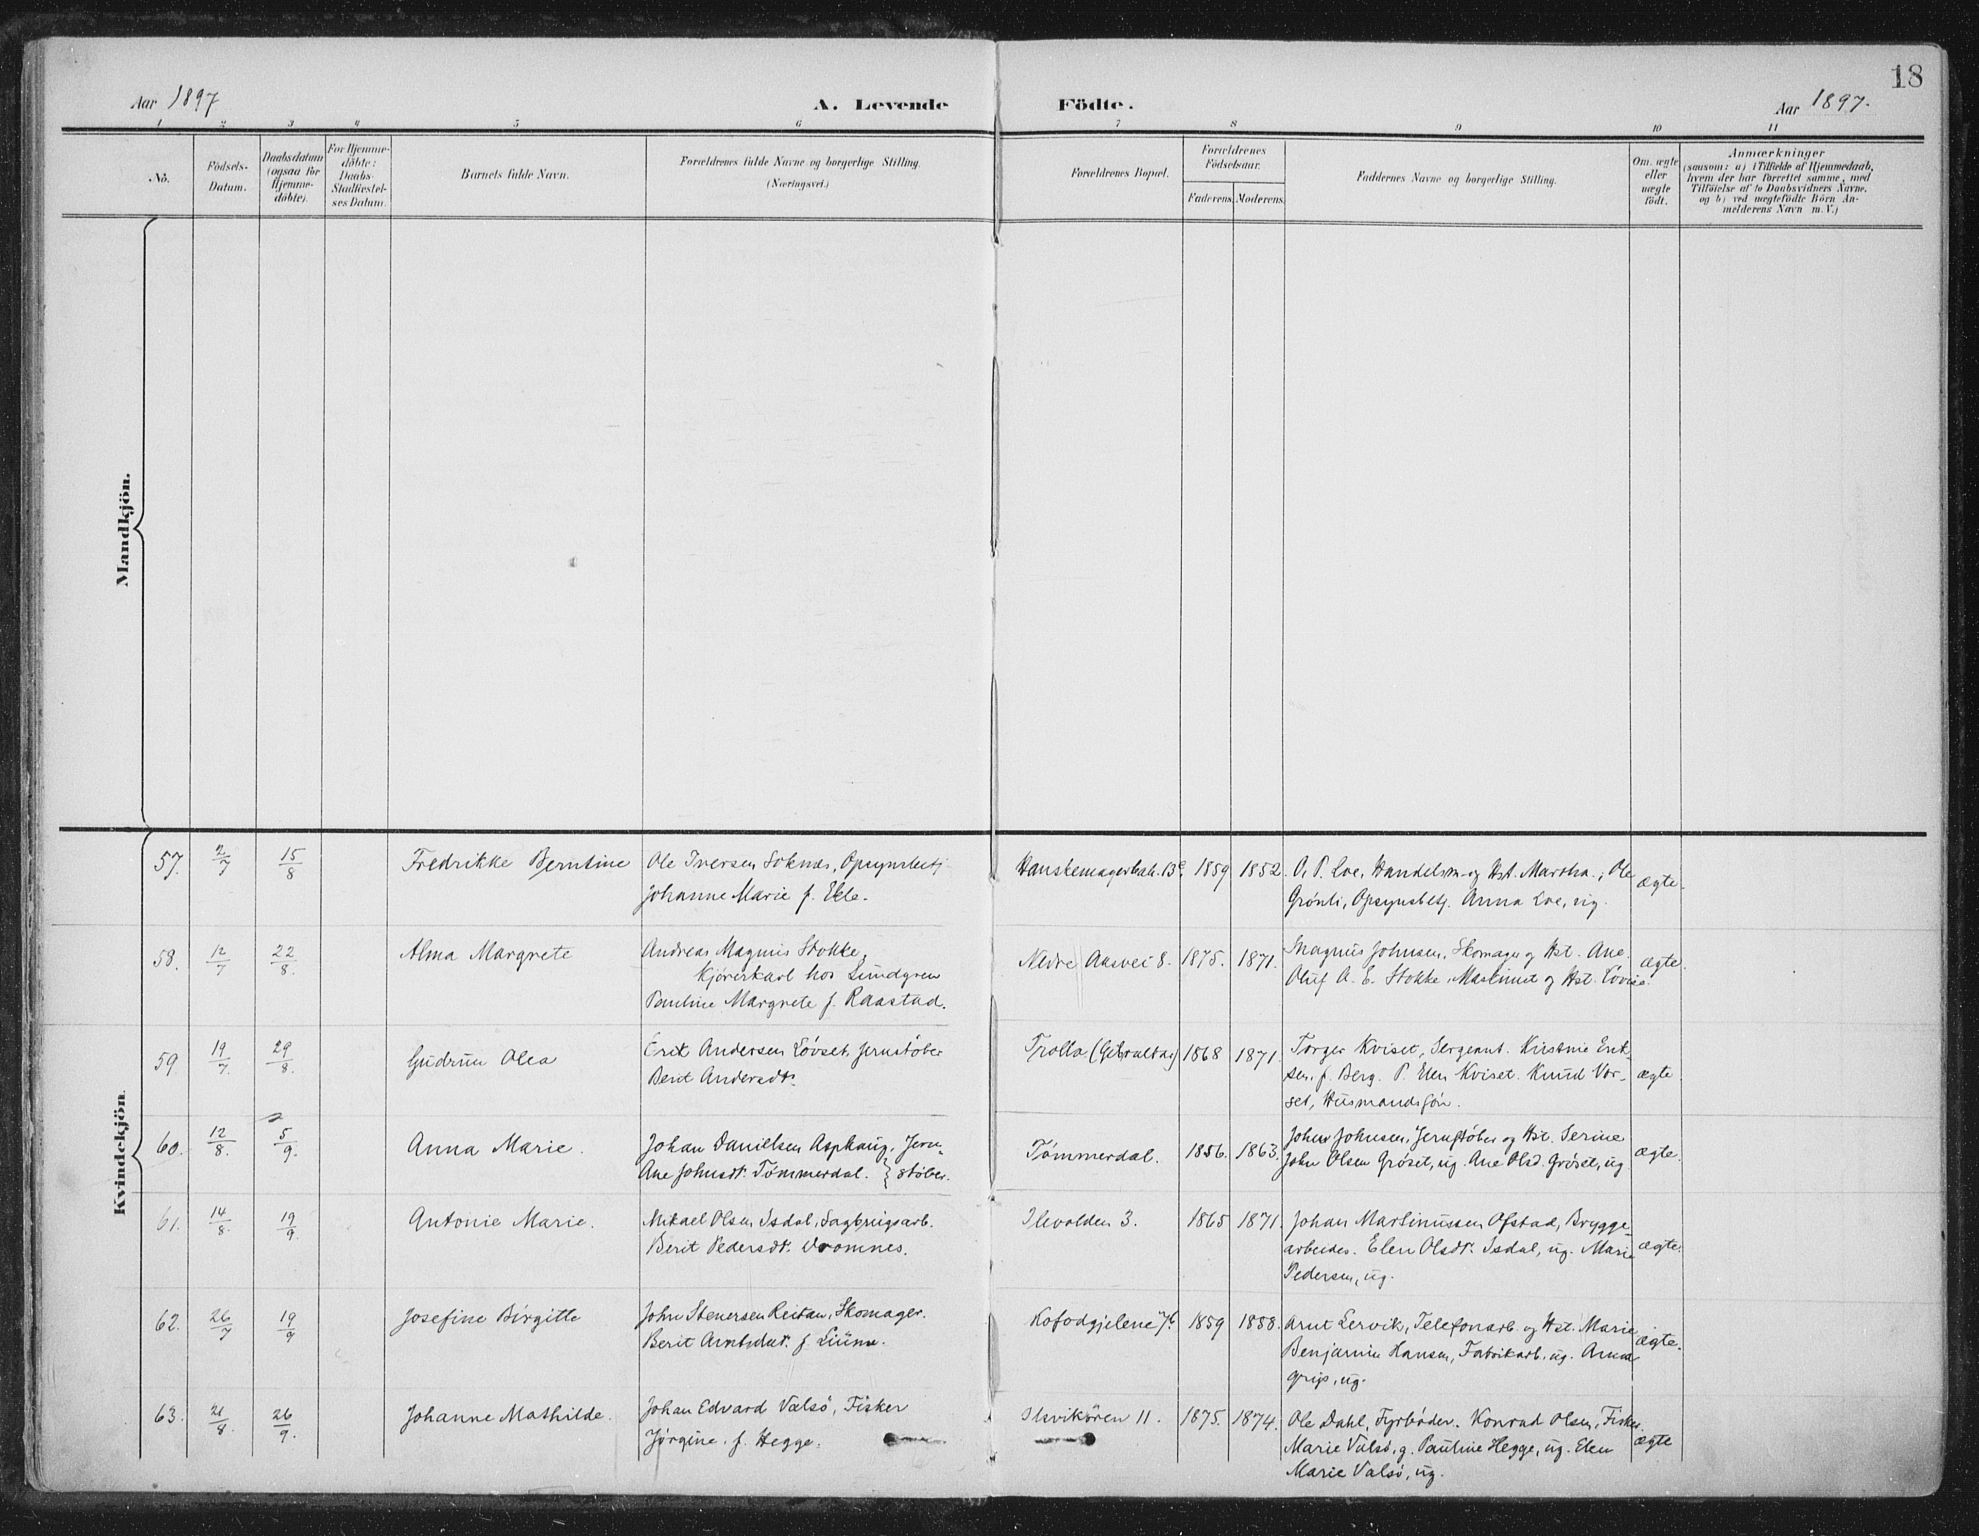 18
Aar 1897
A. Levende Födte.
Aar 1897.
1 2 3 4 5 6 7 8 9 10 11
No.
Födsels-
Datum.
Daabsdatum
(ogsaa for
Hjemme-
döbte).
For Hjemme-
döbte:
Daabs-
Stadfæstel-
ses Datum.
Barnets fulde Navn.
Forældrenes fulde Navne og borgerlige Stilling.
(Næringsvei.)
Forældrenes Bopæl.
Forældrenes
Födselsaar.
Faderens. Moderens.
Faddernes Navne og borgerlige Stilling.
Om ægte
eller
uægte
födt.
Anmærkninger
(saasom: a) i Tilfælde af Hjemmedaab,
hvem der har forrettet samme, med
Tilföielse af to Daabsvidners Navne,
og b) ved uægtefödte Börn An-
melderens Navn m. V.)
Mandkjön.
Kvindekjön.
57. 2/7 15/8 Fredrikke Berntine
Ole Iversen Soknæs, Opsynsbetj.
Johanne Marie f. Ekle.
Hanskemagerbak. 13c 1859 1852.
O. P. Loe, Handelsm. og Hst. Martha, Ole
Grønli, Opsynsbetj. Anna Loe, ug.
ægte.
58. 12/7 22/8. Alma Margrete
Andreas Magnus Stokke,
Kjørerkarl hos Lundgren
Pauline Margrete f. Raastad.
Nedre Aasvei 8. 1875. 1871.
Magnus Johnsen, Skomager og Hst. Ane.
Oluf A. E. Stokke, Maskinist og Hst. Lovise.
ægte.
59 19/7. 29/8. Gudrun Olea
Erik Andersen Løvset, Jernstøber
Berit Andersdt.
Trolla (Gibraltar) 1868 1871.
Torger Kviset, Sergeant. Kirstine Erik-
sen, f. Berg. P. Elen Kviset. Knud Vor-
set, Husmandssøn.
ægte
60. 12/8. 5/9. Anna Marie.
Johan Danielsen Asphaug, Jern-
Ane Johnsdt. Tømmerdal. } støber.
Tømmerdal. 1856. 1863.
John Johnsen, Jernstøber og Hst. Serine
John Olsen Grøset, ug. Ane Olsd. Grøset, ug
ægte.
61. 14/8. 19/9. Antonie Marie.
Mikael Olsen Isdal, Sagbrugsarb.
Berit Pedersdt. Dromnes.
Ilevolden 3. 1865 1871.
Johan Martinussen Ofstad, Brygge-
arbeider. Elen Olsdt. Isdal, ug. Marie
Pedersen, ug.
ægte.
62. 26/7 19/9 Josefine Birgitte
John Stenersen Reitan, Skomager.
Berit Arntsdat. f. Liüm.
Kofodgjelene 7b 1859 1858.
Arnt Lervik, Telefonarb. og Hst. Marie
Benjamin Hansen, Fabrikarb. ug. Anna
Grip, ug.
ægte.
63. 21/8. 26/9. Johanne Mathilde.
Johan Edvard Valsö, Fisker
Jørgine f. Hegge.
Ilsvikören 11. 1875. 1874.
Ole Dahl, Fyrbøder. Konrad Olsen, Fisker
Marie Valsö, g. Pauline Hegge, ug. Elen
Marie Valsö, ug.
ægte